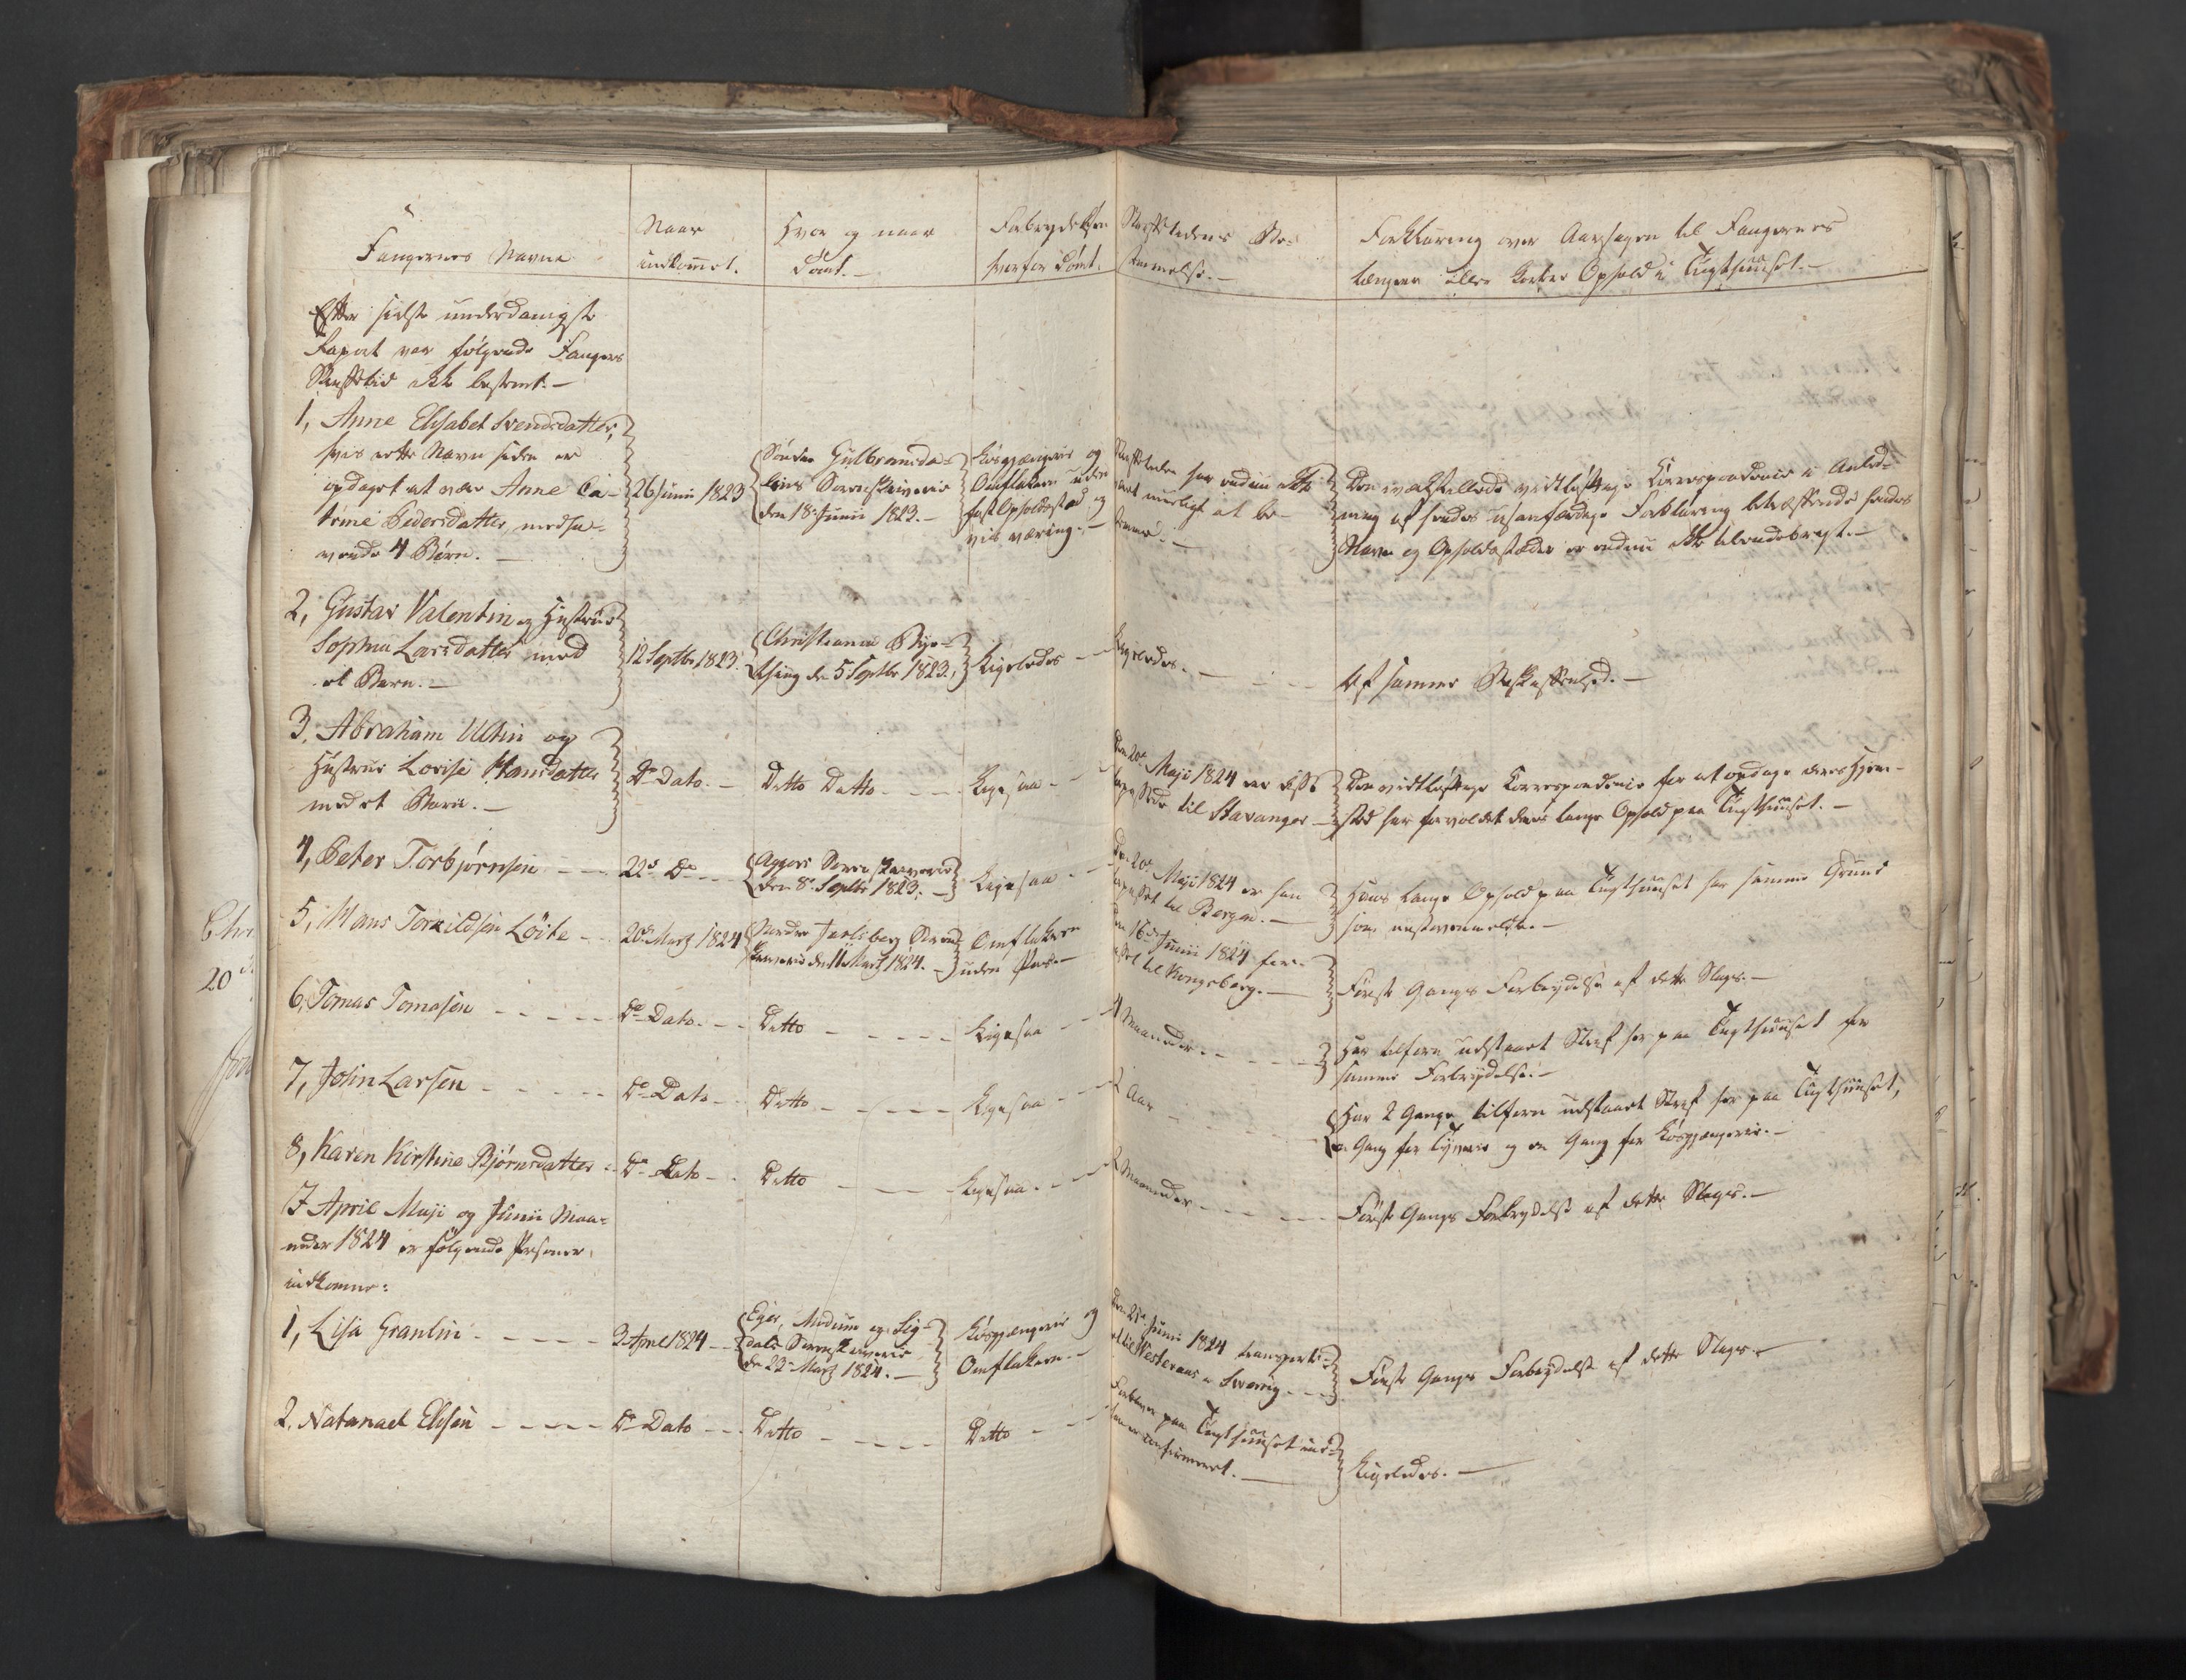 Fangernes Navne
Naar
indkomet.
Hvor og naar
dömt.
Forbrydelsen
hvorfor dömt.
Straffetidens Be-
stemmelse.
Forklaring over Aarsagen til Fangernes
længere eller kortere Ophold i Tugthuuset.
Efter sidste underdanigste
Raport var følgende Fangers
Straffetid ikke bestemt.
1, Anne Elisabet Svendsdatter,
hvis rette Navn siden er
opdaget at være Anne Ca-
trine Pedersdatter, medha-
vende 4 Börn.
26 Junii 1823
Söndre Gulbrandsda-
lens Sorenskriverie
den 18 Junii 1823.
Løsgjængerie og
Omflakken uden
fast Opholdssted og
Straffetiden har endnu ikke
været mueligt at be-
stemme.
Den iværkstillede vidtløftige Correspondence i Anled-
ning af hendes usandfærdige Forklaring betræffende hendes
Navn og Opholdsstæder er endnu ikke tilendebragt.
2, Gustav Valentin og Hustrue
Sophia Larsdatter med
et Barn.
12 Septbr 1823.
Christiania Bye-
thing den 5 Septbr 1823.
Ligeledes
Ligeledes.
Af samme Beskaffenhed.
3, Abraham Ultin og
Hustrue Lovise Hansdatter
med et Barn.
Do Dato.
Ditto Ditto
Ligesaa
Den 20de Maji 1824 ere disse
til Stavanger
Den vidtløftige Correspondence for at opdage deres Hjem-
sted har forvoldet deres lange Ophold paa Tugthuuset.
4, Peter Torbjørnsen
22de Do
Aggers Sorenskriverie
den 8 Septbr 1823.
Ligesaa
Den 20de Maji 1824 er han
til Bergen.
Hans lange Ophold paa Tugthuuset har samme Grund
som næstovenmeldte.
5, Hans Torkildsen Löite
20de Martz 1824
Nordre Jarlsberg Soren-
skriverie den 11te Martz 1824.
Omflakken
uden Pas.
Den 16de Junii 1824 for-
til Kongsberg.
Første Gangs Forbrydelse af dette Slags.
6, Tomas Tomasen
Do Dato.
Ditto
Ligesaa
4 Maaneder
Har tilforn udstaaet Straf her paa Tugthuuset for
samme Forbrydelse.
7, John Larsen
Do Dato
Ditto
Ligesaa
2 Aar
Har 2 Gange tilforn udstaaet Straf her paa Tugthuuset,
en Gang for Tyverie og en Gang for Løsgjængerie.
8, Karen Kirstine Bjørnsdatter
Do Dato
Ditto
Ligesaa
2 Maaneder
Første Gangs Forbrydelse af dette Slags.
I April Maji og Junii Maa-
neder 1824 er følgende Personer
indkomne:
1, Lisa Granlin
2 April 1824
Eger, Modum og Sig-
dals Sorenskriverie
den 22 Martz 1824.
Løsgjængerie og
Omflakken
Den 21de Junii 1824 transporte-
ret til Westeraas i Sverrig
Første Gangs Forbrydelse af dette Slags.
2, Natanael Elisen
Do Dato
Ditto
Ditto
Forbliver paa Tugthuuset ind-
confirmeret.
Ligeledes.
20